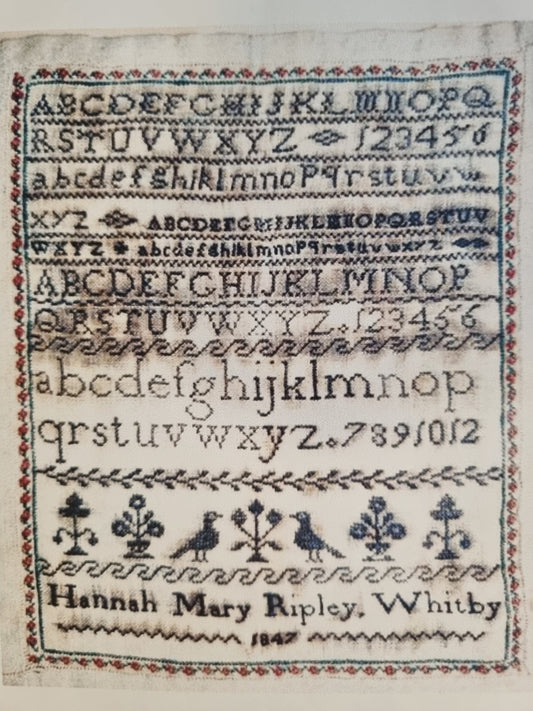 ABCDEFGHIJKLMNOPQ
RSTUVWXYZ 123456
abcdefghiklmnoPqrstuvw
XYZ ABCDEFGHIJKLMNOPQRSTUV
WXYZ abcdefghiklmnoPqrstuvwxyz
ABCDEFGHIJKLMNOP
QRSTUVWXYZ.123456
abcdefghijklmnop
qrstuvwxyz.7891012
Hannah Mary Ripley. Whitby
1847